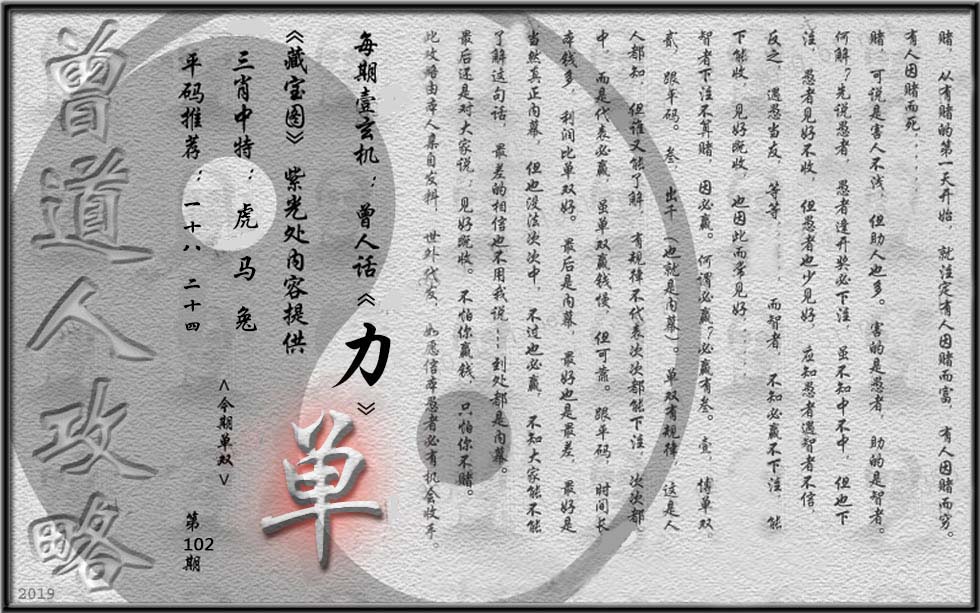 赌，从有赌的第一天开始，就注定有人因赌而富，有人因赌而穷。
有人因赌而死．．．．
赌，可说是害人不浅，但助人也多。害的是愚者，助的是智者。
何解？先说愚者，愚者逢开奖必下注，虽不知中不中，但也下
注，愚者见好不收，但愚者也少见好，应知愚者遇智者不信，
反之，遇愚当友，等等．．．．．而智者，不知必赢不下注，能
下能收，见好既收，也因此而常见好．．．
智者下注不算赌，因必赢。何谓必赢？必赢有叁。壹，博单双，
贰，跟平码。叁，出千（也就是内幕）。单双有规律，这是人
人都知，但谁又能了解，有规律不代表次次都能下注，次次都
中，而是代表必赢，虽单双赢钱慢，但可靠。跟平码，时间长
本钱多，利润比单双好。最后是内幕，最好也是最差，最好是
当然真正内幕，但也没法次次中，不过也必赢，不知大家能不能
了解这句话，最差的相信也不用我说……到处都是内幕。
最后还是对大家说：见好既收。不怕你赢钱，只怕你不赌。
此攻略由本人集自发料，世外代友，如愿信本愚者必有机会收手。
每期壹玄机：曾人话《力》
《藏宝图》紫光处内容提供
单
三肖中特：虎 马 兔
<今期单双>
平码推荐：一十八 二十四
第102期
曾道人攻略
2019